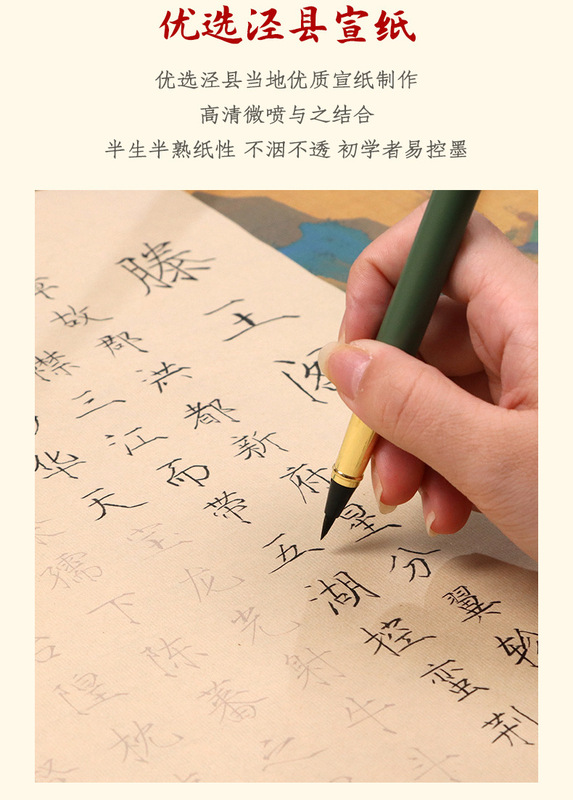 优选泾县宣纸
优选泾县当地优质宣纸制作
高清微喷与之结合
半生半熟纸性 不洇不透 初学者易控墨
滕王阁
故郡洪都新府星分翼轸
襟三江而带五湖控蛮荆
华天宝龙光射牛斗
孺下陈蕃之
隍枕